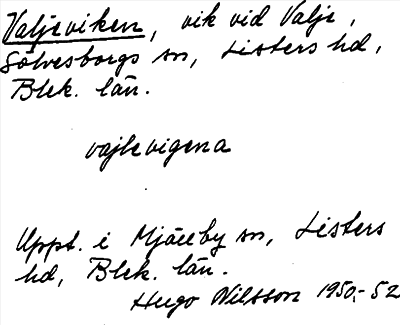 Valjeviken, vik vid Valje,
Sölvesborgs sn, Listers hd,
Blek. län.
vajlevigena
Uppt. i Mjällby sn, Listers
hd, Blek. län.
Hugo Nilsson 1950,-52